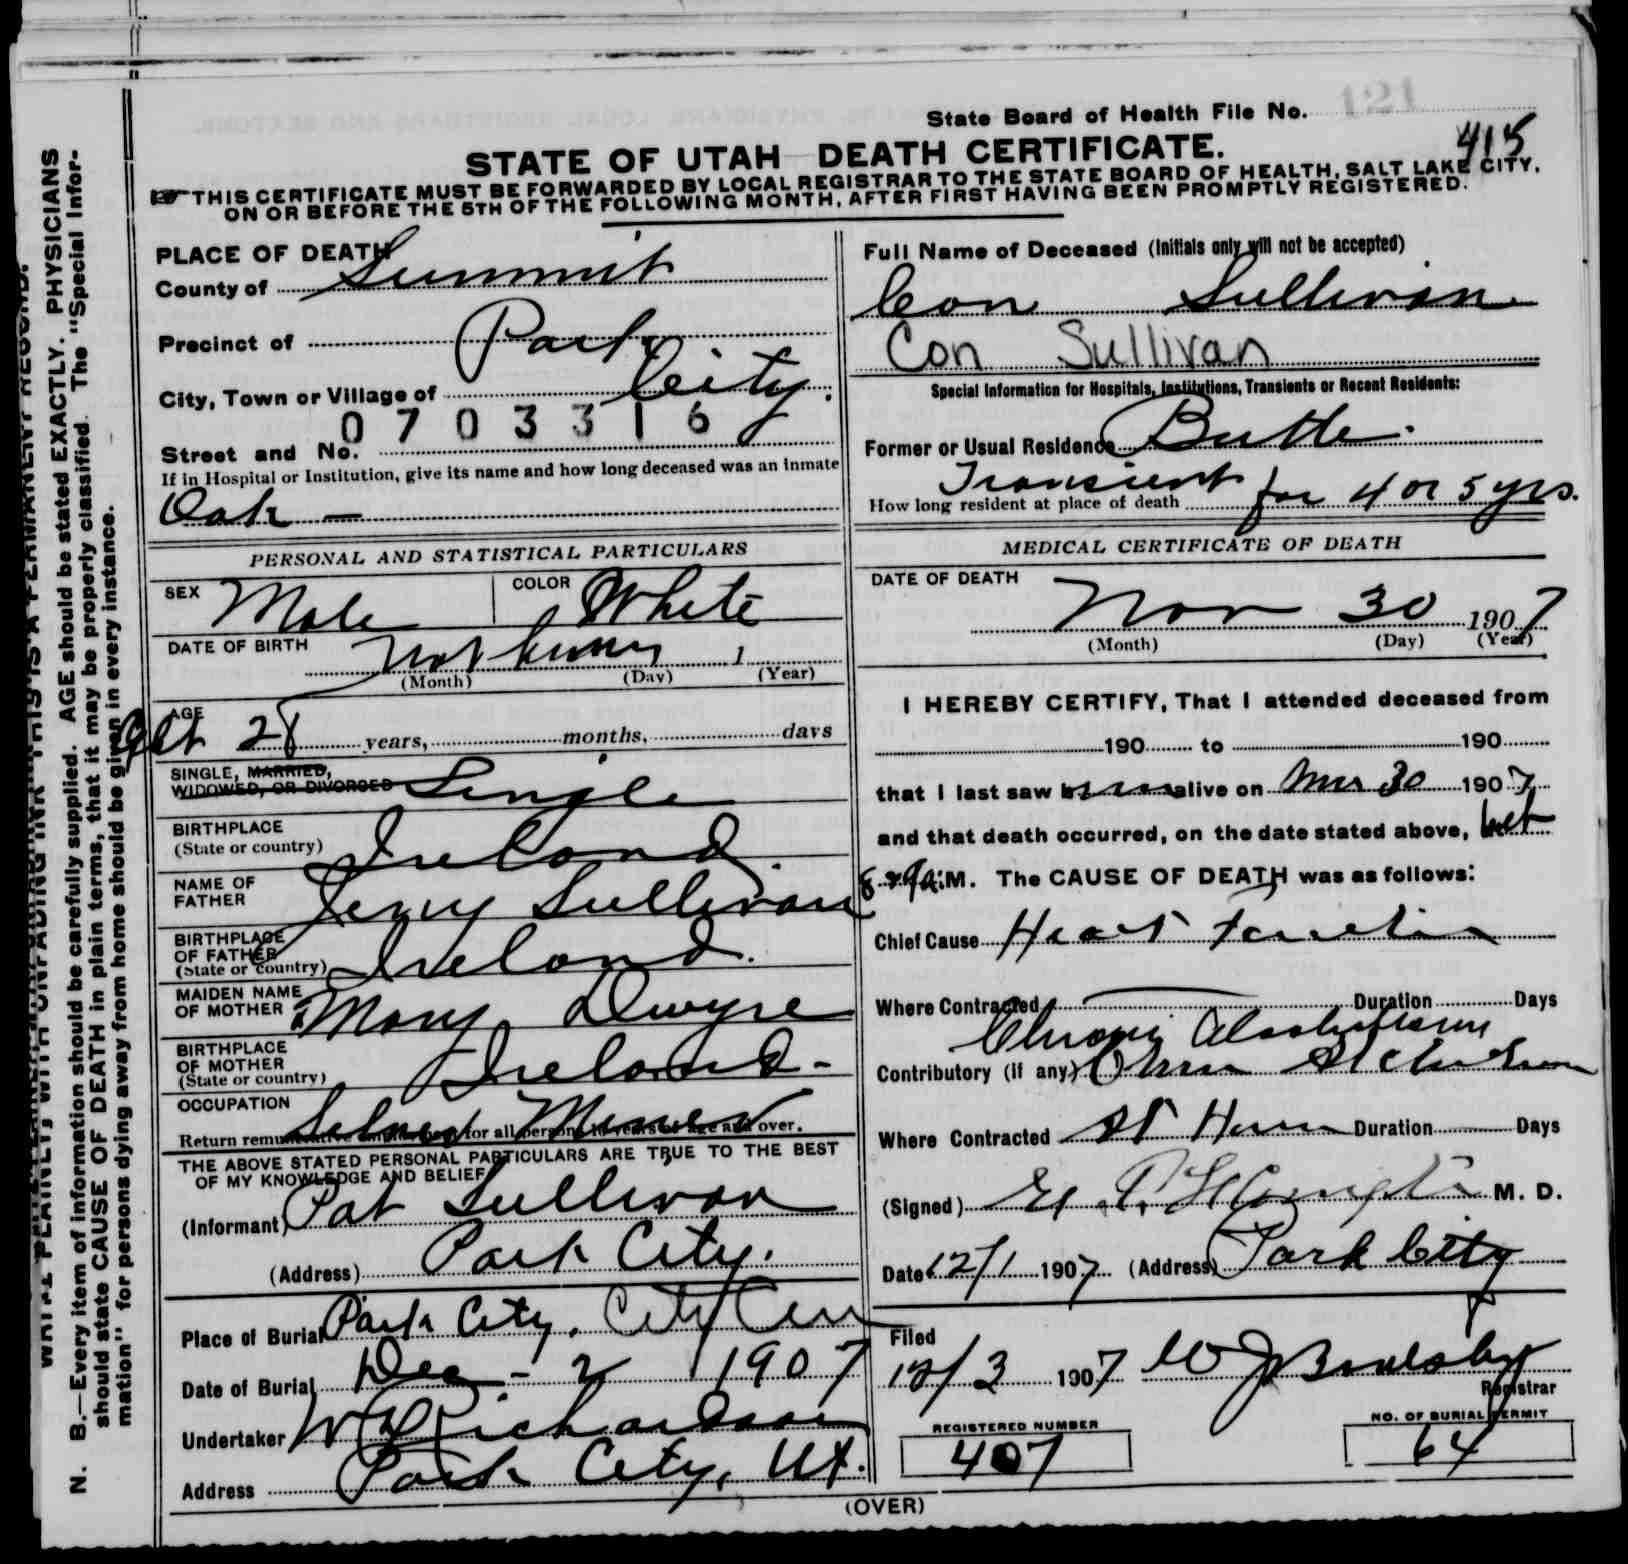 State Board of Health File No. 121
415
STATE OF UTAH DEATH CERTIFICATE.
THIS CERTIFICATE MUST BE FORWARDED BY LOCAL REGISTRAR TO THE STATE BOARD OF HEALTH, SALT LAKE CITY,
ON OR BEFORE THE 5TH OF THE FOLLOWING MONTH, AFTER FIRST HAVING BEEN PROMPTLY REGISTERED.
PLACE OF DEATH
County of Summit
Precinct of Park
City, Town or Village of City.
0703316
Street and No.
If in Hospital or Institution, give its name and how long deceased was an inmate
Oak —
PERSONAL AND STATISTICAL PARTICULARS
SEX Male COLOR White
DATE OF BIRTH Not
(Month) (Day) (Year)
AGE 28 years, months, days
SINGLE, MARRIED,
WIDOWED, OR DIVORCED Single
BIRTHPLACE
(State or country) Ireland.
NAME OF
FATHER Jerry Sullivan
BIRTHPLACE
OF FATHER
(State or country) Ireland.
MAIDEN NAME
OF MOTHER Mary Dwyre
BIRTHPLACE
OF MOTHER
(State or country) Ireland-
OCCUPATION Miner
Return remunerative for all persons over.
THE ABOVE STATED PERSONAL PARTICULARS ARE TRUE TO THE BEST
OF MY KNOWLEDGE AND BELIEF
(Informant) Pat Sullivan
(Address) Park City.
Place of Burial Park City, City Cem
Date of Burial Dec - 2 1907
Undertaker Richardson
Address Park City, Ut.
Full Name of Deceased (Initials only will not be accepted)
Con Sullivan
Con Sullivan
Special Information for Hospitals, Institutions, Transients or Recent Residents:
Former or Usual Residence Butte.
Transient
How long resident at place of death for 4 or 5 yrs.
MEDICAL CERTIFICATE OF DEATH
DATE OF DEATH
Nov 30 1907
(Month) (Day) (Year)
I HEREBY CERTIFY, That I attended deceased from
190 to 190
that I last saw alive on Nov 30 1907
and that death occurred, on the date stated above, bet
8 & 9 a.M. The CAUSE OF DEATH was as follows:
Chief Cause Heart
Where Contracted Duration Days
Chronic Alcoholism
Contributory (if any)
Where Contracted at Home Duration Days
(Signed) M. D.
Date 12/1 1907 (Address) Park City
Filed
12/3 1907 W J
Registrar
REGISTERED NUMBER
407
NO. OF BURIAL PERMIT
64
(OVER)
N. B.—Every item of information should be carefully supplied. AGE should be stated EXACTLY. PHYSICIANS
should state CAUSE OF DEATH in plain terms, that it may be properly classified. The "Special Infor-
mation" for persons dying away from home should be given in every instance.